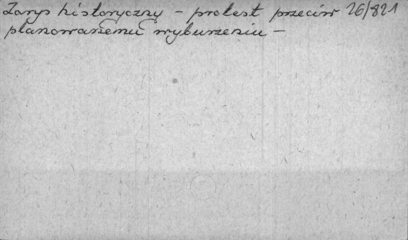 Zarys historyczny - protest przeciw 26/821
planowanemu wyburzeniu -